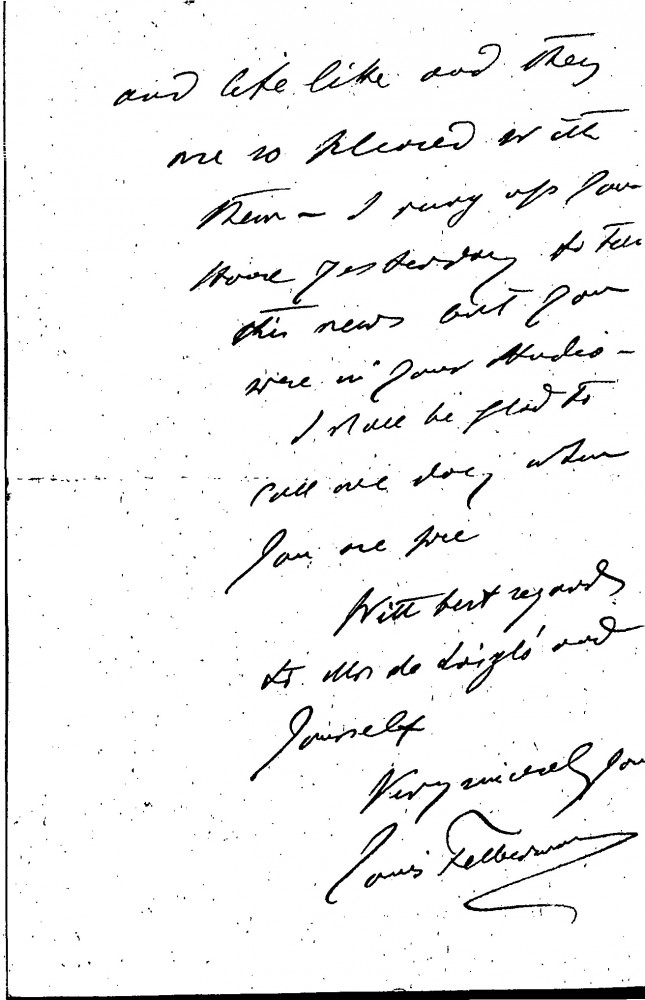 and life like and they
are so pleased with
them – I rang up your
house yesterday to tell
this news but you
were in your studio –
I shall be glad to
call one day, when
you are free
With best regards
to Mrs de László and
yourself
Very sincerely you
Louis Felberman